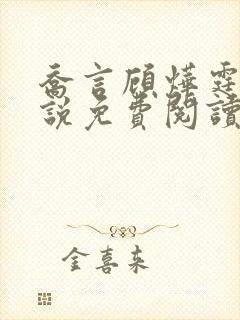 喬言顧燁霆
說免費閱讀
金喜来